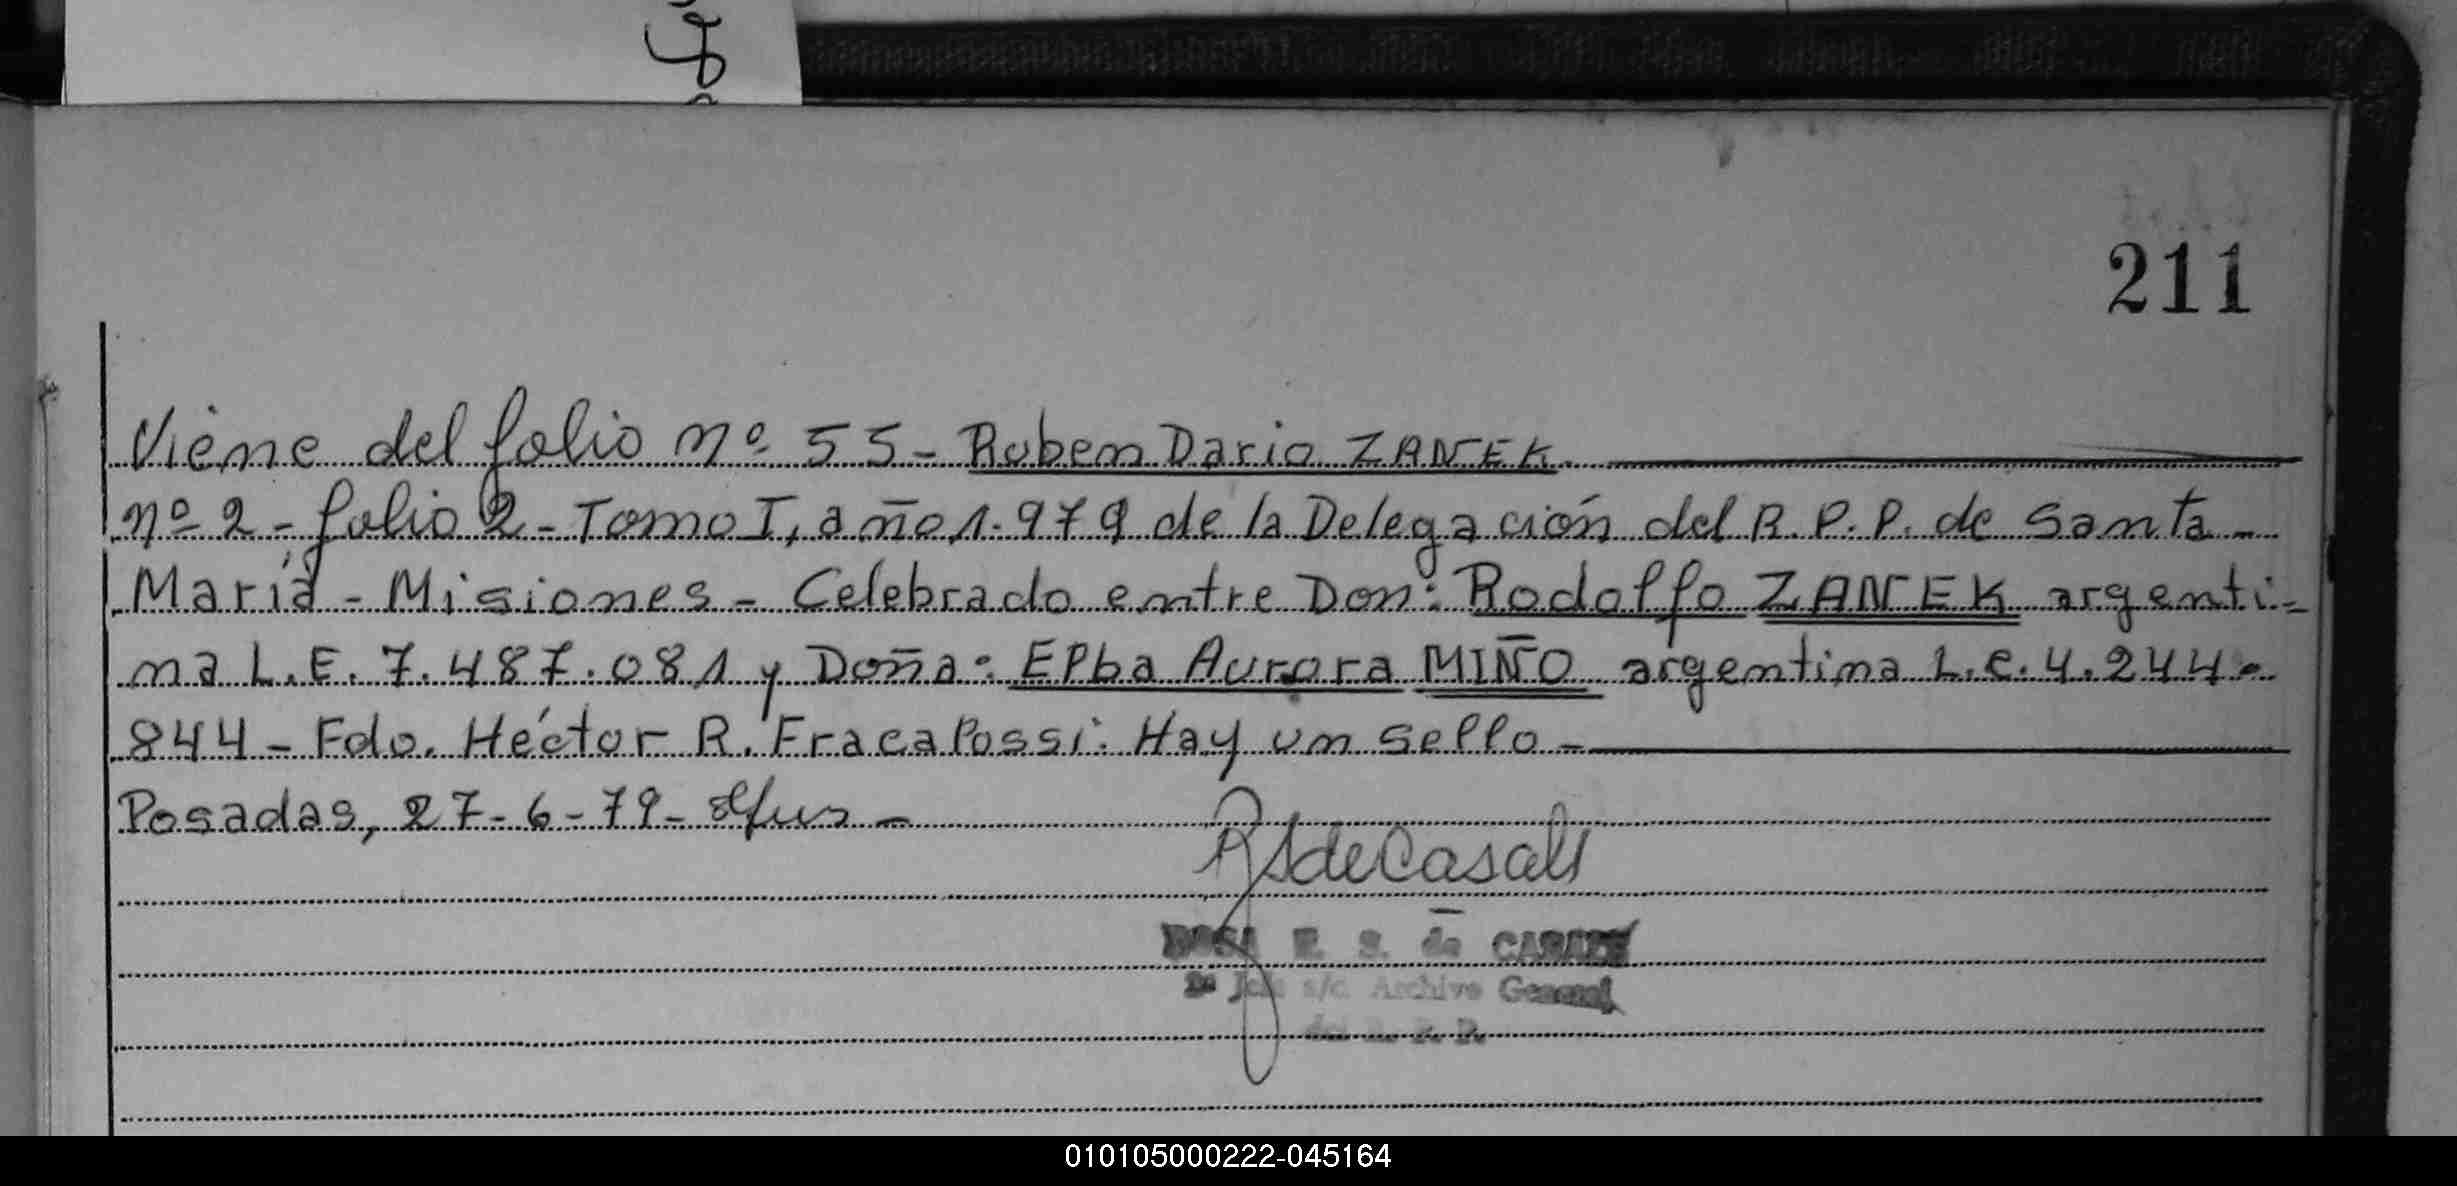 211
Viene del folio nº 55 - Ruben Dario ZANEK.
nº 2 - folio 2 - Tomo I, año 1.979 de la Delegación del R.P.P. de Santa -
María - Misiones - Celebrado entre Don: Rodolfo ZANEK argenti-
na L.E. 7.487.081 y Doña: Elba Aurora MIÑO argentina L.C. 4.244.
844 - Fdo. Héctor R. Fracalossi: Hay un sello -
Posadas, 27-6-79-
RSdeCasals
ROSA E. S. de CASALS
2º Jefe s/c. Archivo General
del R. P. P.
010105000222-045164